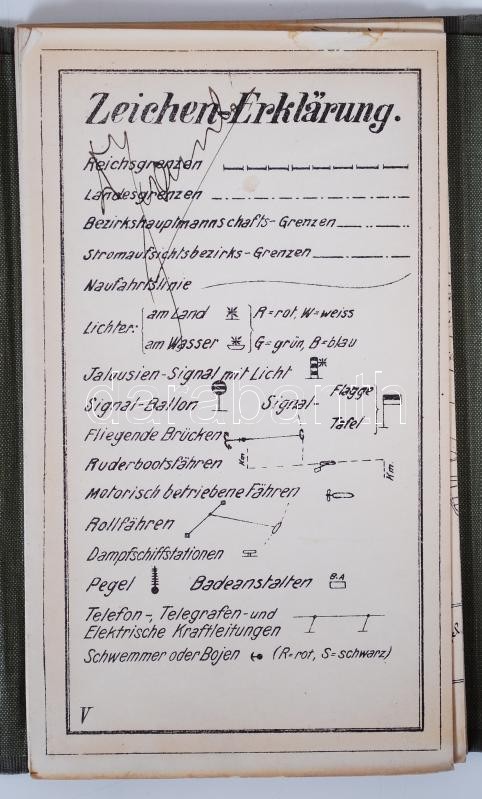 Zeichen-Erklärung.
Reichsgrenzen
Landesgrenzen
Bezirkshauptmannschafts-Grenzen
Stromaufsichtsbezirks-Grenzen
Naufahrtslinie
Lichter: am Land R=rot, W=weiss
am Wasser G=grün, B=blau
Jalousien-Signal mit Licht
Signal-Ballon Signal- Flagge
Tafel
Fliegende Brücken
Ruderbootsfähren Km. Km.
Motorisch betriebene Fähren
Rollfähren
Dampfschiffstationen
Pegel Badeanstalten B.A
Telefon-, Telegrafen- und
Elektrische Kraftleitungen
Schwemmer oder Bojen (R=rot, S=schwarz)
V
darabanth